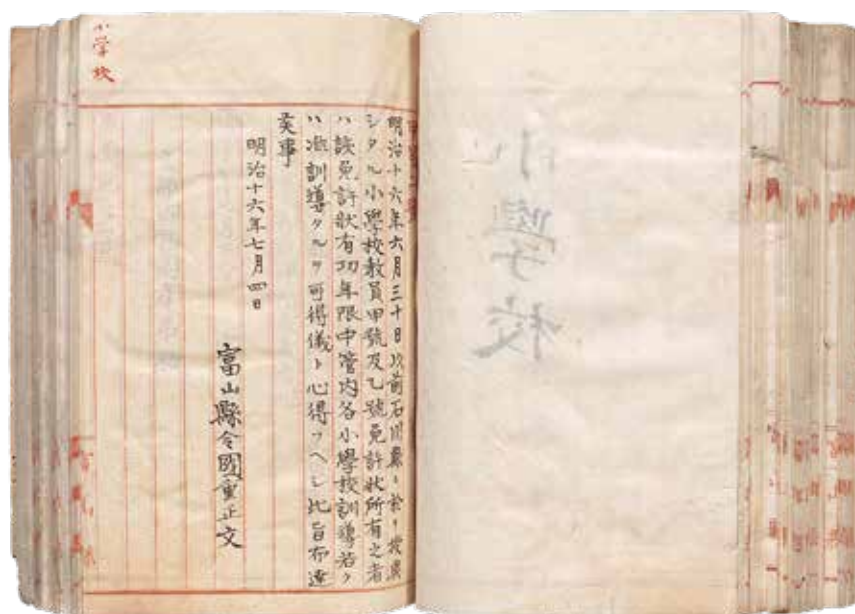 小學校
小学校
明治十六年六月三十日以前石川縣ニ於テ授與
シタル小學校教員甲號及乙號免許狀所有之者
ハ該免許狀有功年限中管内各小學校訓導若ク
ハ准訓導タルヲ可得儀ト心得ヘシ此旨布達
候事
明治十六年七月四日
富山縣令國重正文